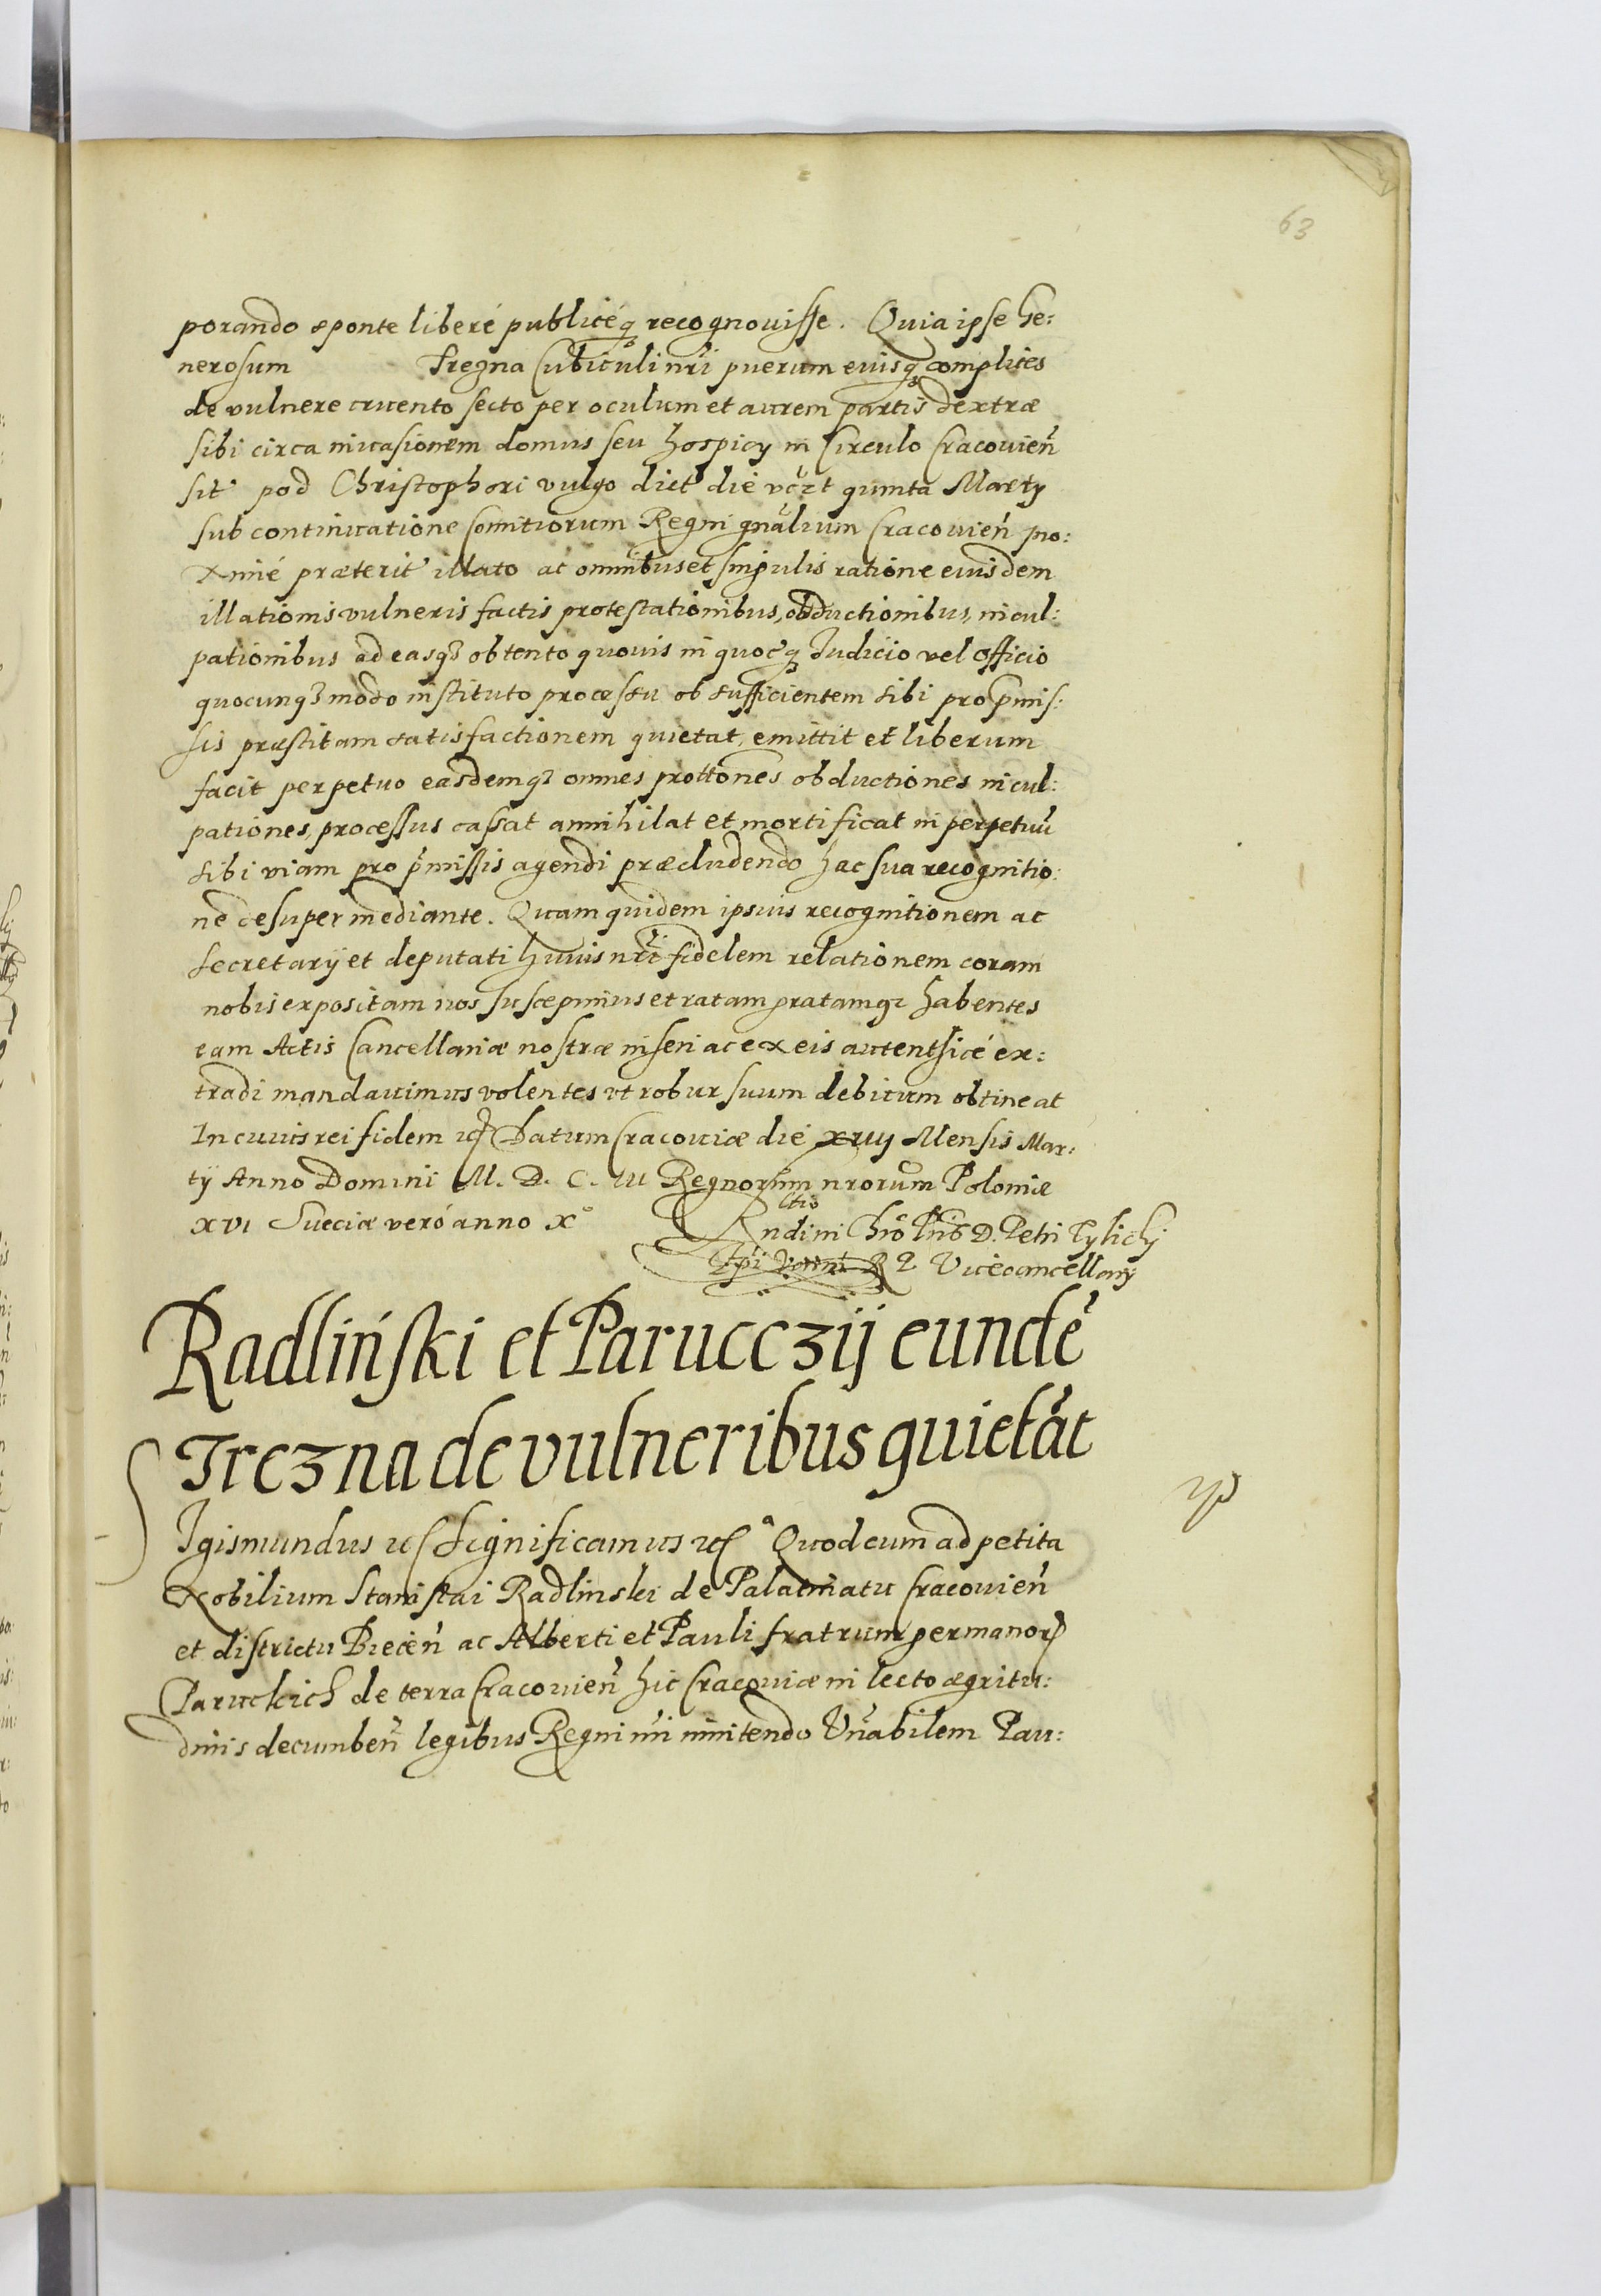 63
porando sponte liberé publicéq recognovisse. Quia ipse Ge:
nerosum Trezna Cubiculi nrí puerum eiusq complices
de vulnere cruento secto per oculum et aurem partis dextræ
sibi circa invasionem domus seu hospicy in Circulo Cracovień
sit pod Christophori vulgo dict die quinta Marty
sub continuatione Comitiorum Regni gnalium Cracovień pro:
ximé præterit illato ac omnibus et singulis ratione eiusdem
illationis vulneris factis protestationibus, obductionibus, incul:
pationibus ad easq obtento quovis in quocq Iudicio vel officio
quocunq modo instituto processu ob sufficientem sibi pro pmis:
sis præstitam satisfactionem quietat, emittit et liberum
facit perpetuo easdemq omnes prottones obductiones incul:
pationes, processus cassat annihilat et mortificat in perpetuu
sibi viam pro pmissis agendi præcludendo hac sua recognitio:
ne desuper mediante. Quam quidem ipsius recognitionem ac
Secretarÿ et deputati huius nri fidelem relationem coram
nobis expositam nos suscepimus et ratam gratamq habentes
eam Actis Cancellariæ nostræ inseri ac ex eis autenthicé ex:
tradi mandavimus volentes ut robur suum debitum obtineat
In cuius rei fidem Datum Cracoviæ die xviij Mensis Mar:
tÿ Anno Domini M. D. C. III Regnorum nrorum Poloniæ
XVI Sueciæ veró anno Xº
Rltio Rndi in Chro Pris D. Petri Tylicky
Epi RP Vicecancellarÿ
Radlińſki et Parucczÿ eundē
Trezna de vulneribus quietāt
Sigismundus Significamus Quod cum ad petita
Nobilium Stanislai Radlinski de Palatinatu Cracovień
et districtu Biecén ac Alberti et Pauli fratrum germanor
Paruckich de terra Cracovień hic Cracoviæ in lecto ægritu:
dinis decumbeń legibus Regni innitendo Vnabilem Pau: